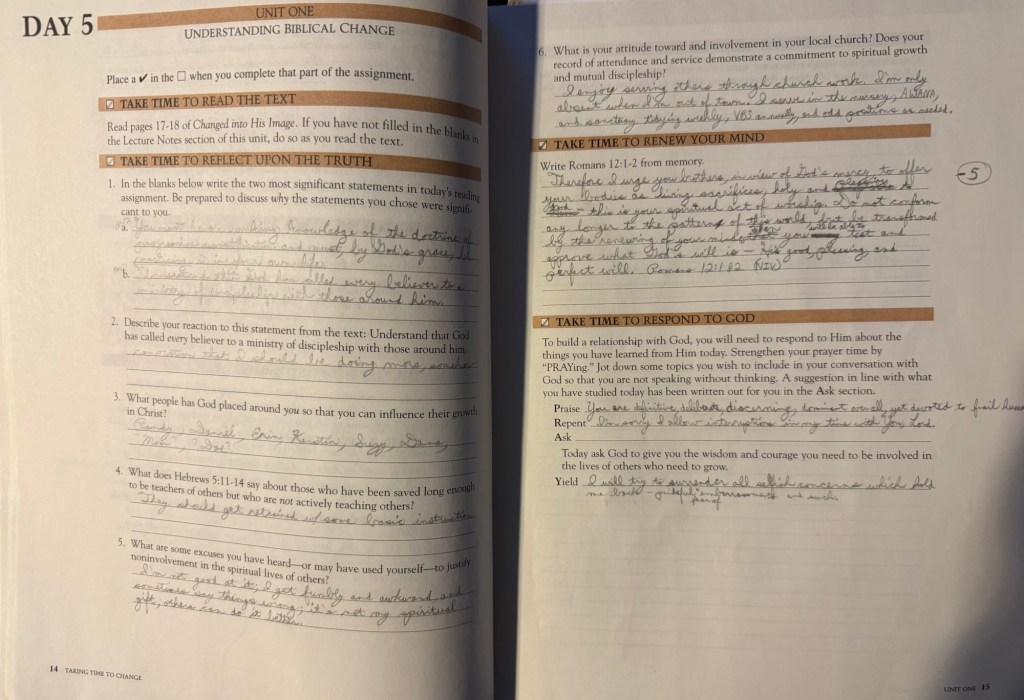 DAY 5
UNIT ONE
UNDERSTANDING BIBLICAL CHANGE
Place a ✔ in the ☐ when you complete that part of the assignment.
☑ TAKE TIME TO READ THE TEXT
Read pages 17-18 of Changed into His Image. If you have not filled in the blanks in
the Lecture Notes section of this unit, do so as you read the text.
☑ TAKE TIME TO REFLECT UPON THE TRUTH
1. In the blanks below write the two most significant statements in today's reading
assignment. Be prepared to discuss why the statements you chose were signifi-
cant to you.
a. You must have a working knowledge of the doctrine of
and must, by God's grace, be
it in your own life.
b. Understand that God has called every believer to a
ministry of discipleship with those around him.
2. Describe your reaction to this statement from the text: Understand that God
has called every believer to a ministry of discipleship with those around him.
conviction that I should be doing more, somehow
3. What people has God placed around you so that you can influence their growth
in Christ?
Randy, Daniel, Erin, Kerstin, Suzy, Dana,
Mom?, ?Dad?
4. What does Hebrews 5:11-14 say about those who have been saved long enough
to be teachers of others but who are not actively teaching others?
They should get retrained w/ some basic instruction
5. What are some excuses you have heard—or may have used yourself—to justify
noninvolvement in the spiritual lives of others?
I'm not good at it; I get fumbly and awkward, and
sometimes say things wrong; it's not my spiritual
gift, others can do it better.
14 TAKING TIME TO CHANGE
6. What is your attitude toward and involvement in your local church? Does your
record of attendance and service demonstrate a commitment to spiritual growth
and mutual discipleship?
I enjoy serving others through church work. I'm only
absent when I'm out of town. I serve in the nursery, AWANA,
and sanctuary tidying weekly, VBS annually, and odd positions as needed.
☑ TAKE TIME TO RENEW YOUR MIND
Write Romans 12:1-2 from memory.
-5
Therefore I urge you brothers, in view of God's mercy, to offer
your bodies as living sacrifices, holy and pleasing to
God - this is your spiritual act of worship. Do not conform
any longer to the pattern of this world, but be transformed
by the renewing of your mind. then you will be able to test and
approve what God's will is - His good, pleasing, and
perfect will. Romans 12:1 & 2 (NIV)
☑ TAKE TIME TO RESPOND TO GOD
To build a relationship with God, you will need to respond to Him about the
things you have learned from Him today. Strengthen your prayer time by
"PRAYing." Jot down some topics you wish to include in your conversation with
God so that you are not speaking without thinking. A suggestion in line with what
you have studied today has been written out for you in the Ask section.
Praise You are definitive, deliberate, discerning, dominant overall, yet devoted to frail
Repent I'm sorry I allow interruptions in my time with You, Lord.
Ask
Today ask God to give you the wisdom and courage you need to be involved in
the lives of others who need to grow.
Yield I will try to surrender all selfish concerns which hold
me back - fear of embarrassment and such
UNIT ONE 15